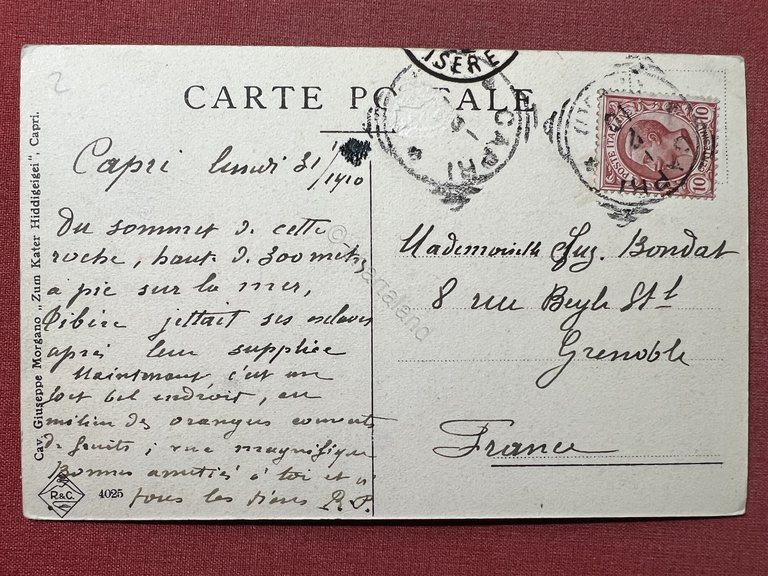 2
CARTE POSTALE
ISERE
CAPRI
CAPRI
POSTE ITALIANE
10 10
Capri lundi 31/1910
Du sommet de cette
roche, haute de 300 mètres
à pic sur la mer,
Tibère jettait ses esclaves
après leur supplice
Maintenant c'est un
bel endroit, au
milieu des orangers couverts
de fruits ; vue magnifique
Bonnes amitiés à toi et à
tous les tiens R.P.
Mademoiselle Suz. Bondat
8 rue Beyle St.l
Grenoble
France
Cav. Giuseppe Morgano „Zum Kater Hiddigeigei", Capri.
R.&C. 4025